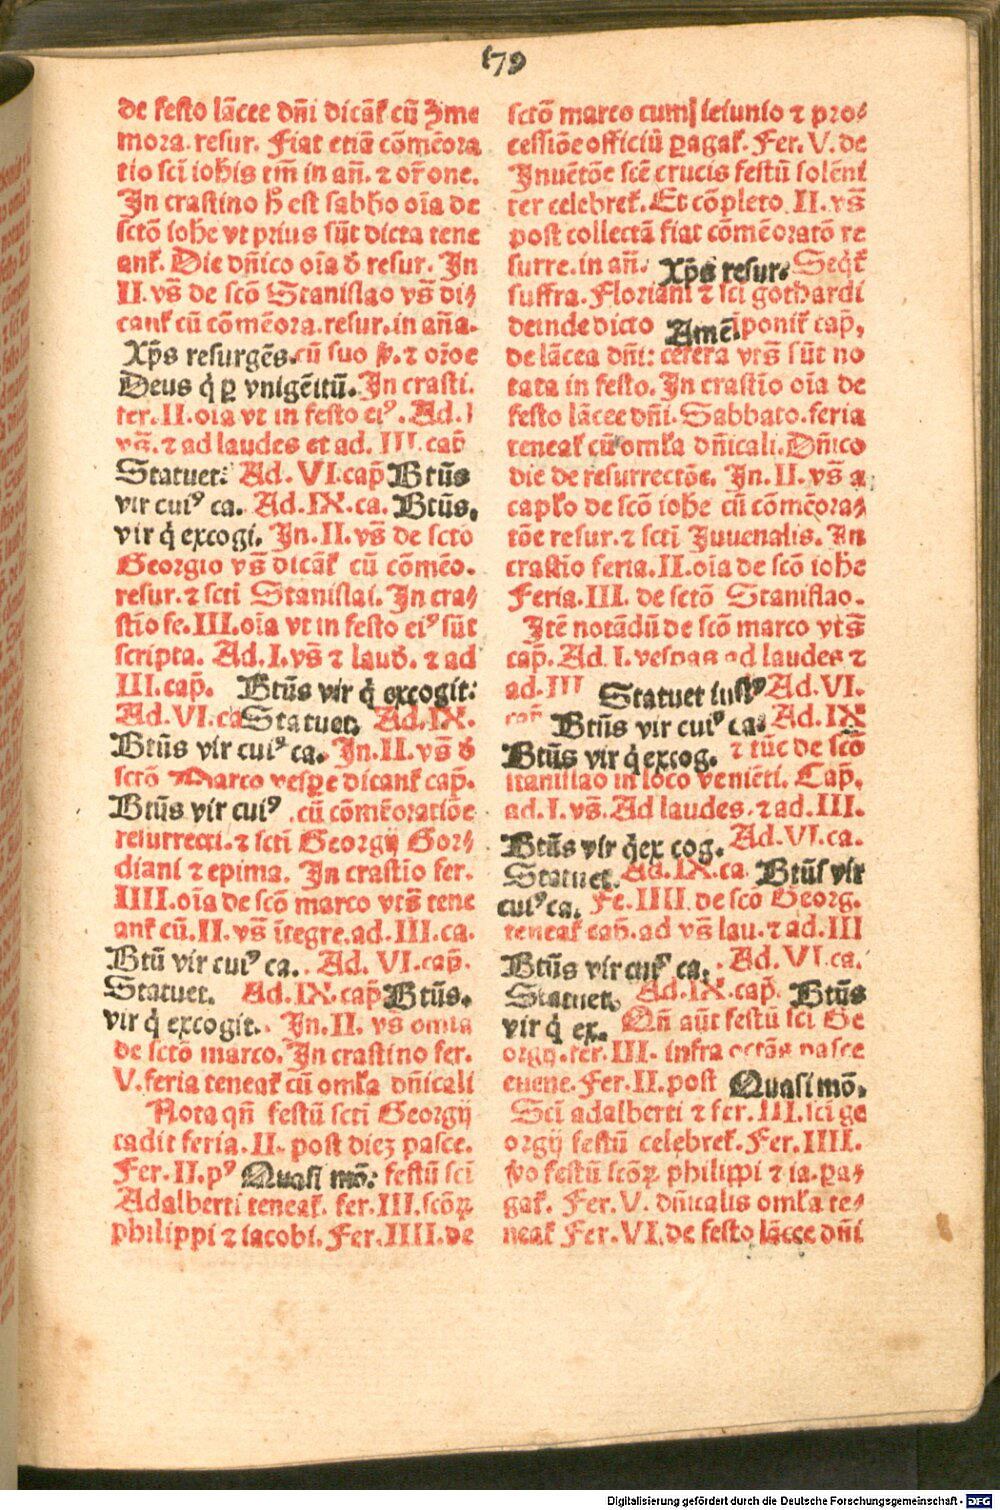 179
de festo lācee dñi dicāt̄ cū ꝯme
mora. resur. Fiat etiā cōmēora
tio sci iohis tm̄ in añ. ⁊ or̄one.
In crastino ħ est sabb̄o oīa de
sctō iohe vt prius sūt dicta tene
ant̄. Die dñico oīa đ resur. In
II. vs̄ de scō Stanislao vs̄ di⸗
cant̄ cū cōmēora.resur.in aña.
Xp̄s resurgēs.cū suo ꝟ. ⁊ or̄oe
Deus q̄ ꝑ vnigēitū. In crasti.
ter. II. oīa vt in festo eiꝰ. Ad. I
vs̄. ⁊ ad laudes et ad. III. cap̄
Statuet: Ad. VI. cap̄ Btūs
vir cuiꝰ ca. Ad. IX. ca. Btūs.
vir q̄ excogi. In. II. vs̄ de scto
Georgio vs̄ dicāt̄ cū cōmēo.
resur. ⁊ scti Stanislai. In cra⸗
stīo fe. III. oīa vt in festo eiꝰ sūt
scripta. Ad. I. vs̄ ⁊ laud̄. ⁊ ad
III. cap̄. Btūs vir q̄ excogit:
Ad. VI. ca Statuet. Ad. IX.
Btūs vir cuiꝰ ca. In. II. vs̄ đ
sctō Marco vesꝑe dicant̄ cap̄.
Btūs vir cuiꝰ .cū cōmēoratiōe
resurrecti. ⁊ scti Georgij Gor⸗
diani ⁊ epima. In crastīo fer.
IIII. oīa de scō marco vts̄ tene
ant̄ cū. II. vs̄ ītegre. ad. III. ca.
Btū vir cuiꝰ ca. . Ad. VI. cap̄.
Statuet. Ad. IX. cap̄ Btūs.
vir q̄ excogit. . In. II. vs̄ omīa
de sctō marco. In crastino fer.
V. feria teneat̄ cū omīa dñicali
Nota qñ festū scti Georgij
cadit feria. II. post diez pasce.
Fer. II. pꝰ Quasi mō: festū sci
Adalberti teneat̄. fer. III. scōꝝ
philippi ⁊ iacobi. Fer. IIII. de
sctō marco cum ieiunio ⁊ pro⸗
cessiōe officiū ꝑagat̄. Fer. V. de
Inuētōe scē crucis festū solēni
ter celebret̄. Et cōpleto. II. vs̄
post collectā fiat cōmēoratō re
surre. in añ. Xp̄s resur. Seq̄t̄
suffra. Floriani ⁊ sci gothardi
deinde dicto Amē. īponit̄ cap̄,
de lācea dñi: cetera vts̄ sūt no
tata in festo. In crastīo oīa de
festo lācee dñi. Sabbato. feria
teneat̄ cū omīa dñicali. Dñico
die de resurrectōe. In. II. vs̄ a
caplo de scō iohe cū cōmēora⸗
tōe resur. ⁊ scti Juvenalis. In
crastīo feria. II. oīa de scō iohe
Feria. III. de sctō Stanislao.
Itē notādū de scō marco vts̄
cap̄. Ad. I. vespas ad laudes ⁊
ad. III Statuet iustꝰ Ad. VI.
cap̄ Btūs vir cuiꝰ ca. Ad. IX
Btūs vir q̄ excog. ⁊ tūc de scō
stanislao in loco veniēti. Cap̄.
ad. I. vs̄. Ad laudes. ⁊ ad. III.
Btūs vir q̄ ex cog. Ad. VI. ca.
Statuet. Ad. IX. ca Btūs vir
cuiꝰ ca. Fe. IIII. de scō Georg.
teneat̄ cap̄. ad vs̄ lau. ⁊ ad. III
Btūs vir cuiꝰ ca. . Ad. VI. ca.
Statuet. Ad. IX. cap̄. Btūs
vir q̄ ex. Qñ aūt festū sci Ge
orgij. fer. III. infra octās pasce
euene. Fer. II. post Quasi mō.
Sci adalberti ⁊ fer. III. sci ge
orgij festū celebret̄. Fer. IIII.
ꝟo festū scōꝝ philippi ⁊ ia. ꝑa⸗
gat̄. Fer. V. dñicalis omīa te⸗
neat̄ Fer. VI. de festo lācee dñi
Digitalisierung gefördert durch die Deutsche Forschungsgemeinschaft - DFG